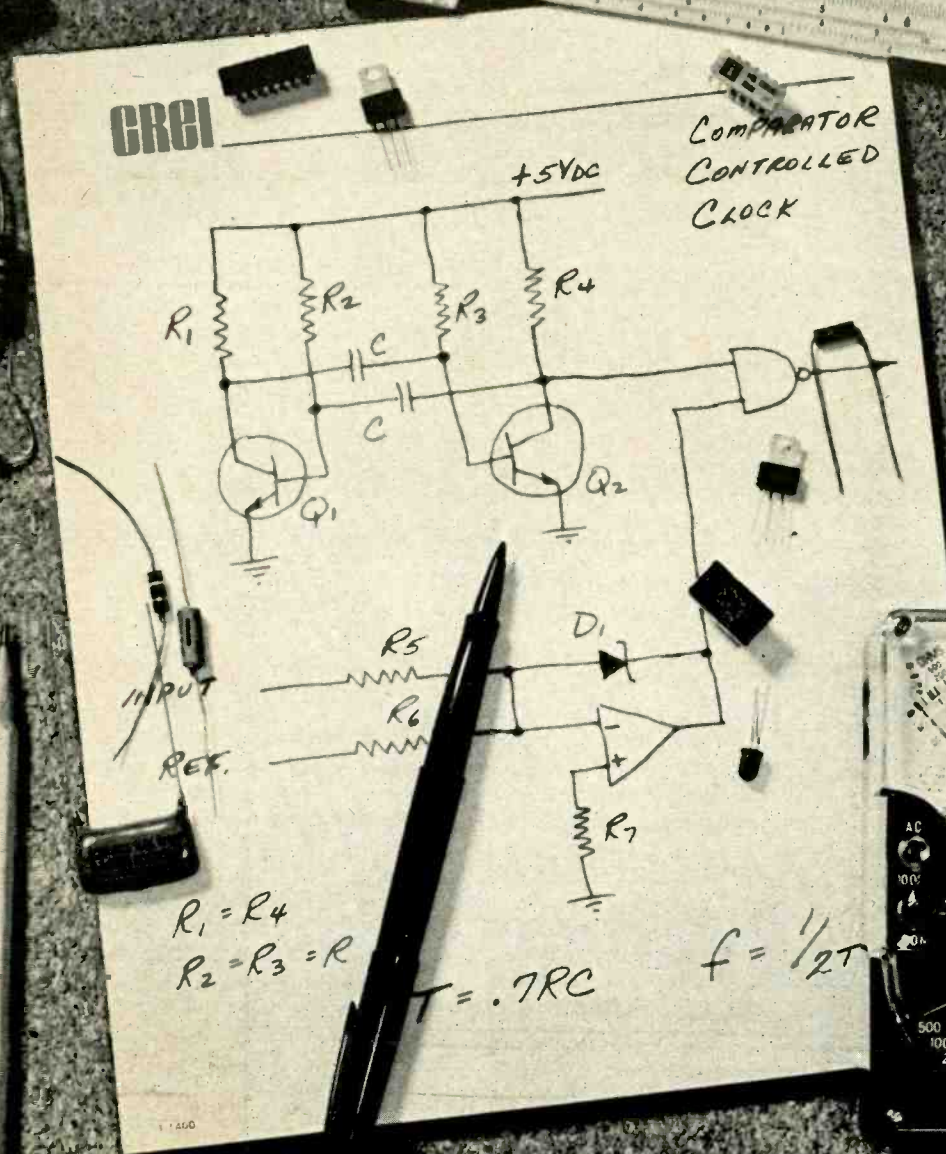 CREI
COMPARATOR
CONTROLLED
CLOCK
+5VDC
R1
R2
C
R3
R4
C
Q1
Q2
R5
D1
INPUT
R6
REF.
-
+
R7
R1 = R4
R2 = R3 = R
T = .7RC
f = 1/2T
AC
500